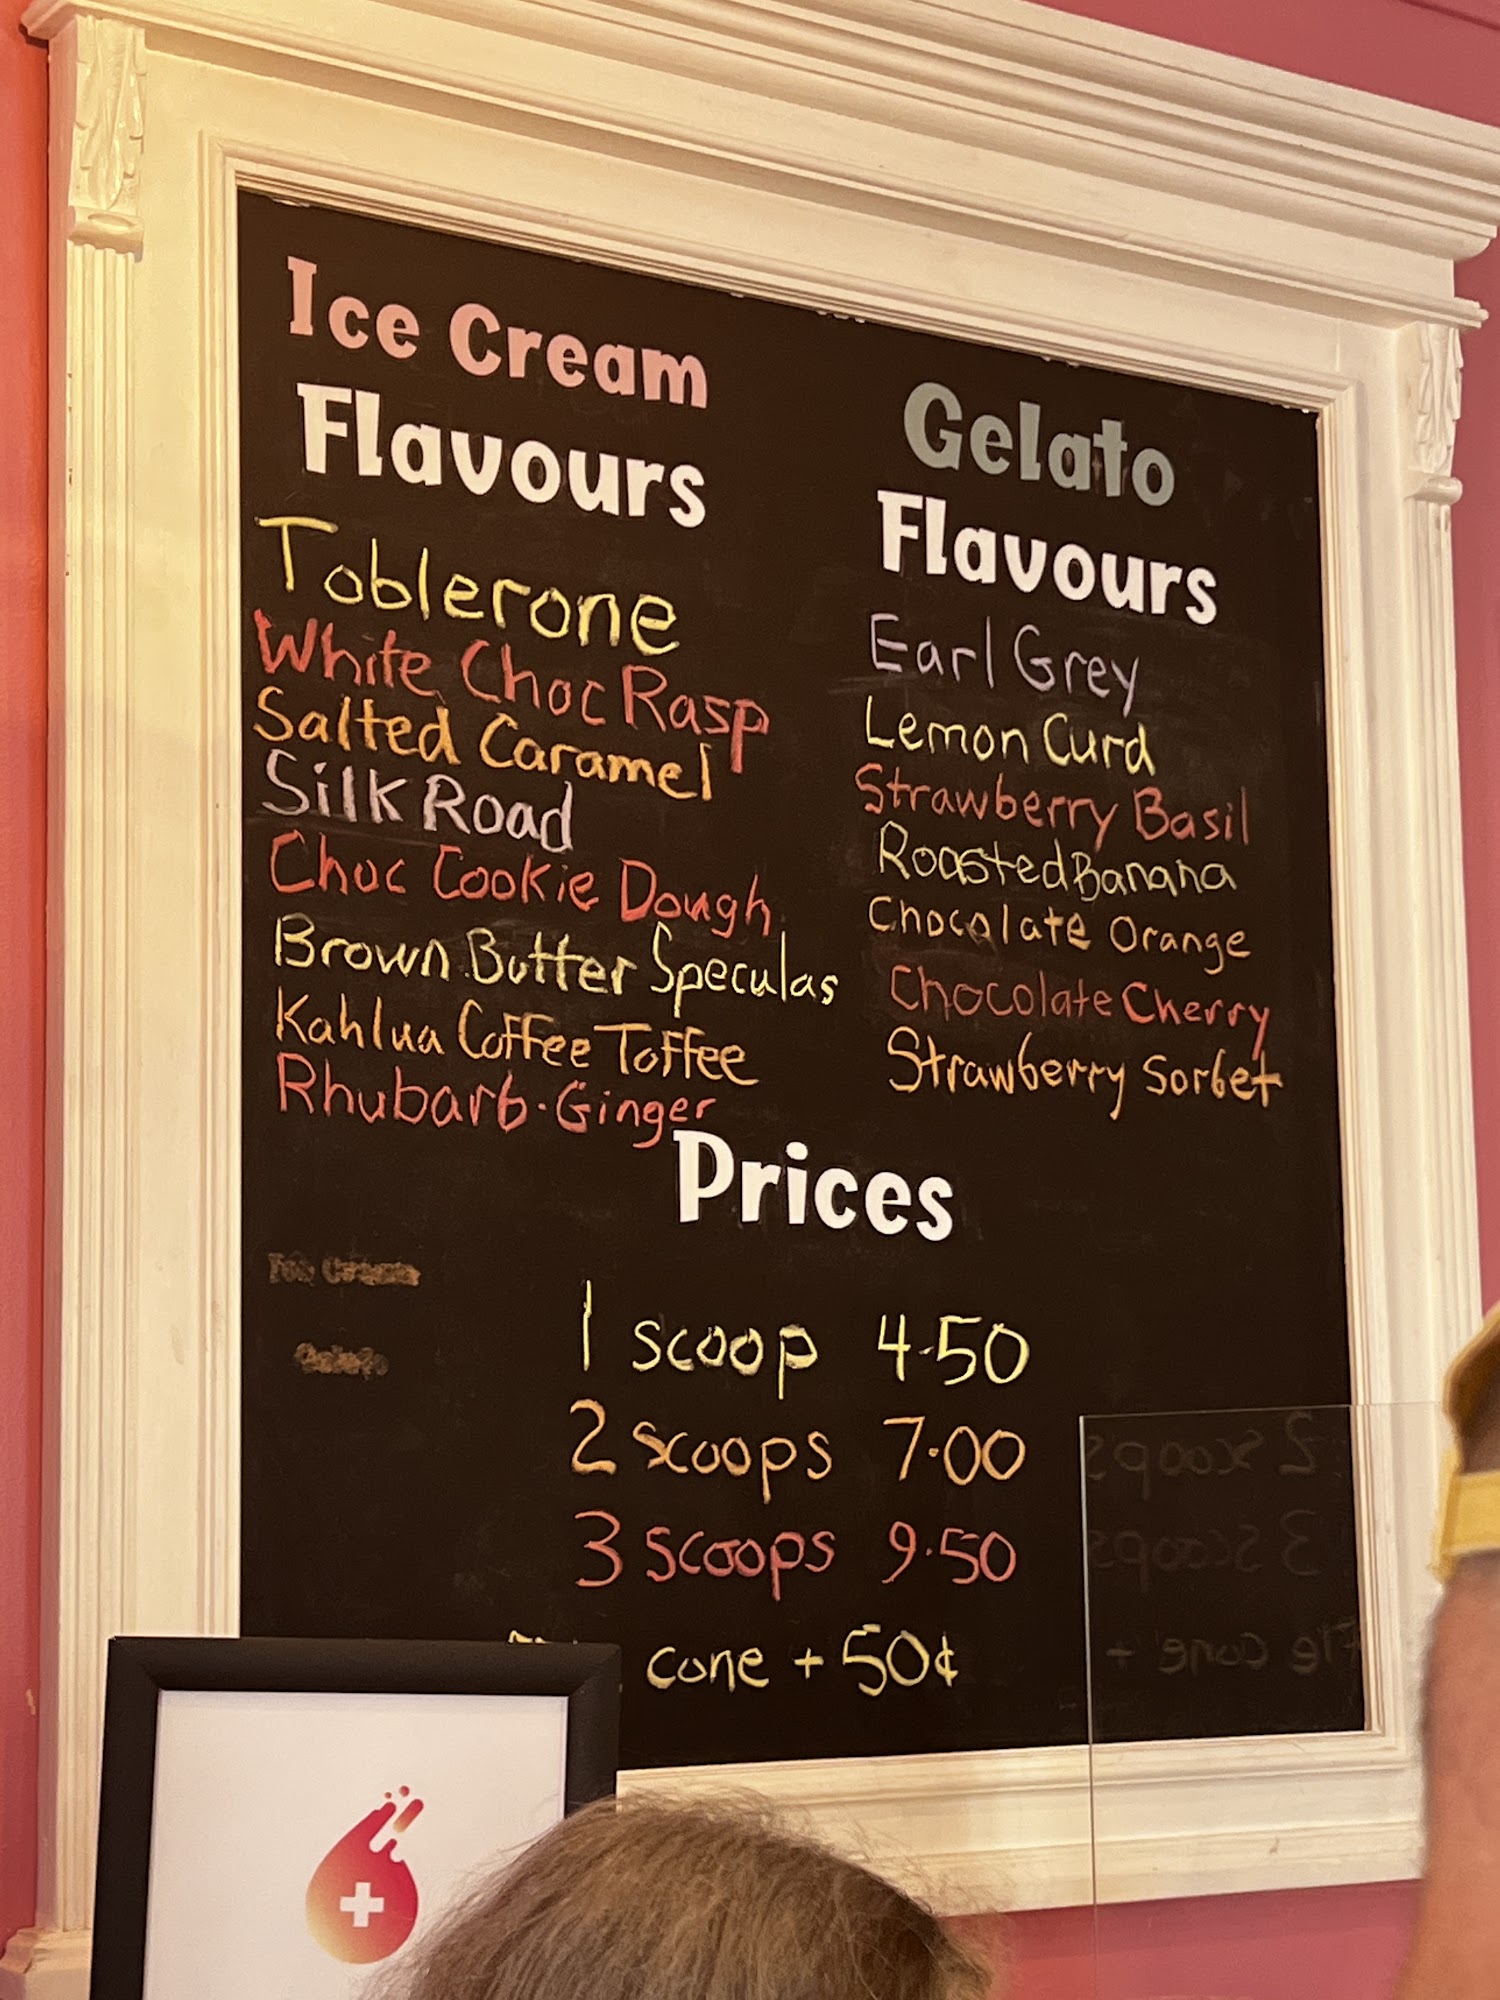 Ice Cream
Flavours
Toblerone
White Choc Rasp
Salted Caramel
Silk Road
Choc Cookie Dough
Brown Butter Speculas
Kahlua Coffee Toffee
Rhubarb. Ginger
Gelato
Flavours
Earl Grey
Lemon Curd
Strawberry Basil
Roasted Banana
Chocolate Orange
Chocolate Cherry
Strawberry Sorbet
Prices
1 scoop 4.50
2 scoops 7.00
3 scoops 9.50
cone + 50¢